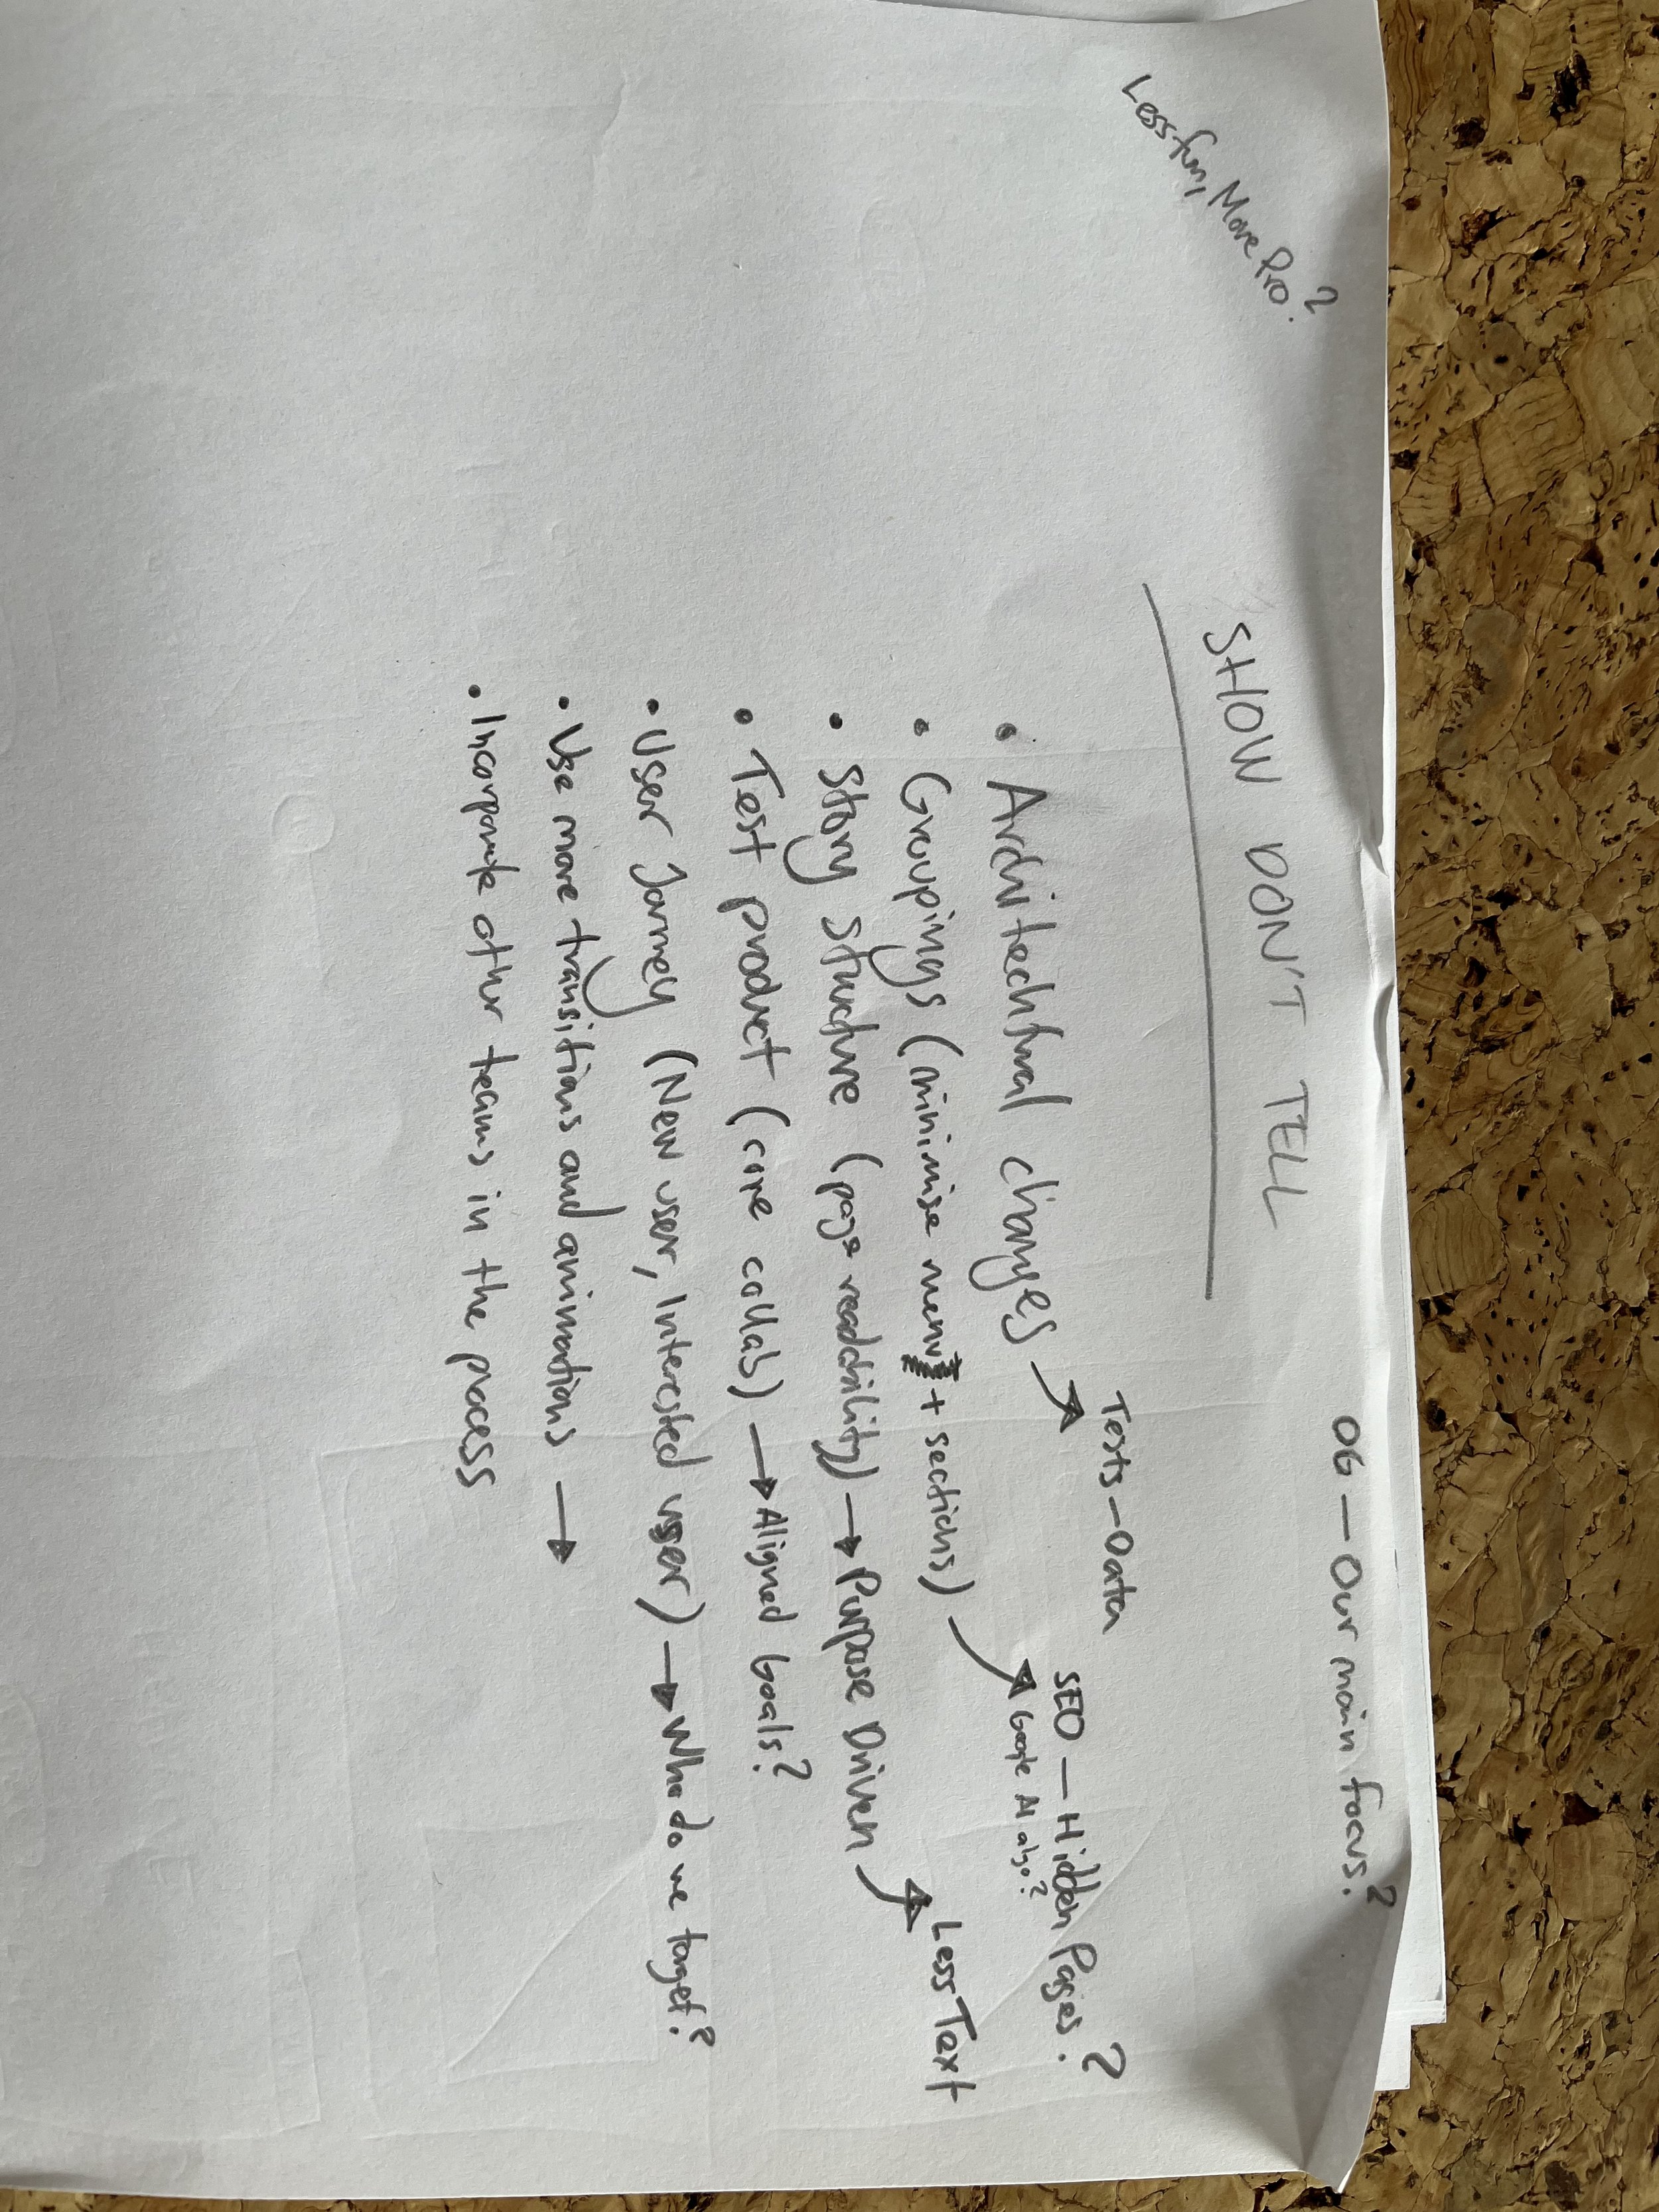 Less fun, More Pro?
OG — Our main focus?
SHOW DON'T TELL
Tests — Data
SEO — Hidden Pages?
Google AI also?
• Architechtural changes →
• Groupings (minimise menu + sections) →
• Story structure (page readability) → Purpose Driven → Less Text
• Test product (core collab) → Aligned Goals?
• User Journey (New user, Interested user) → Who do we target?
• Use more transitions and animations →
• Incorporate other teams in the process